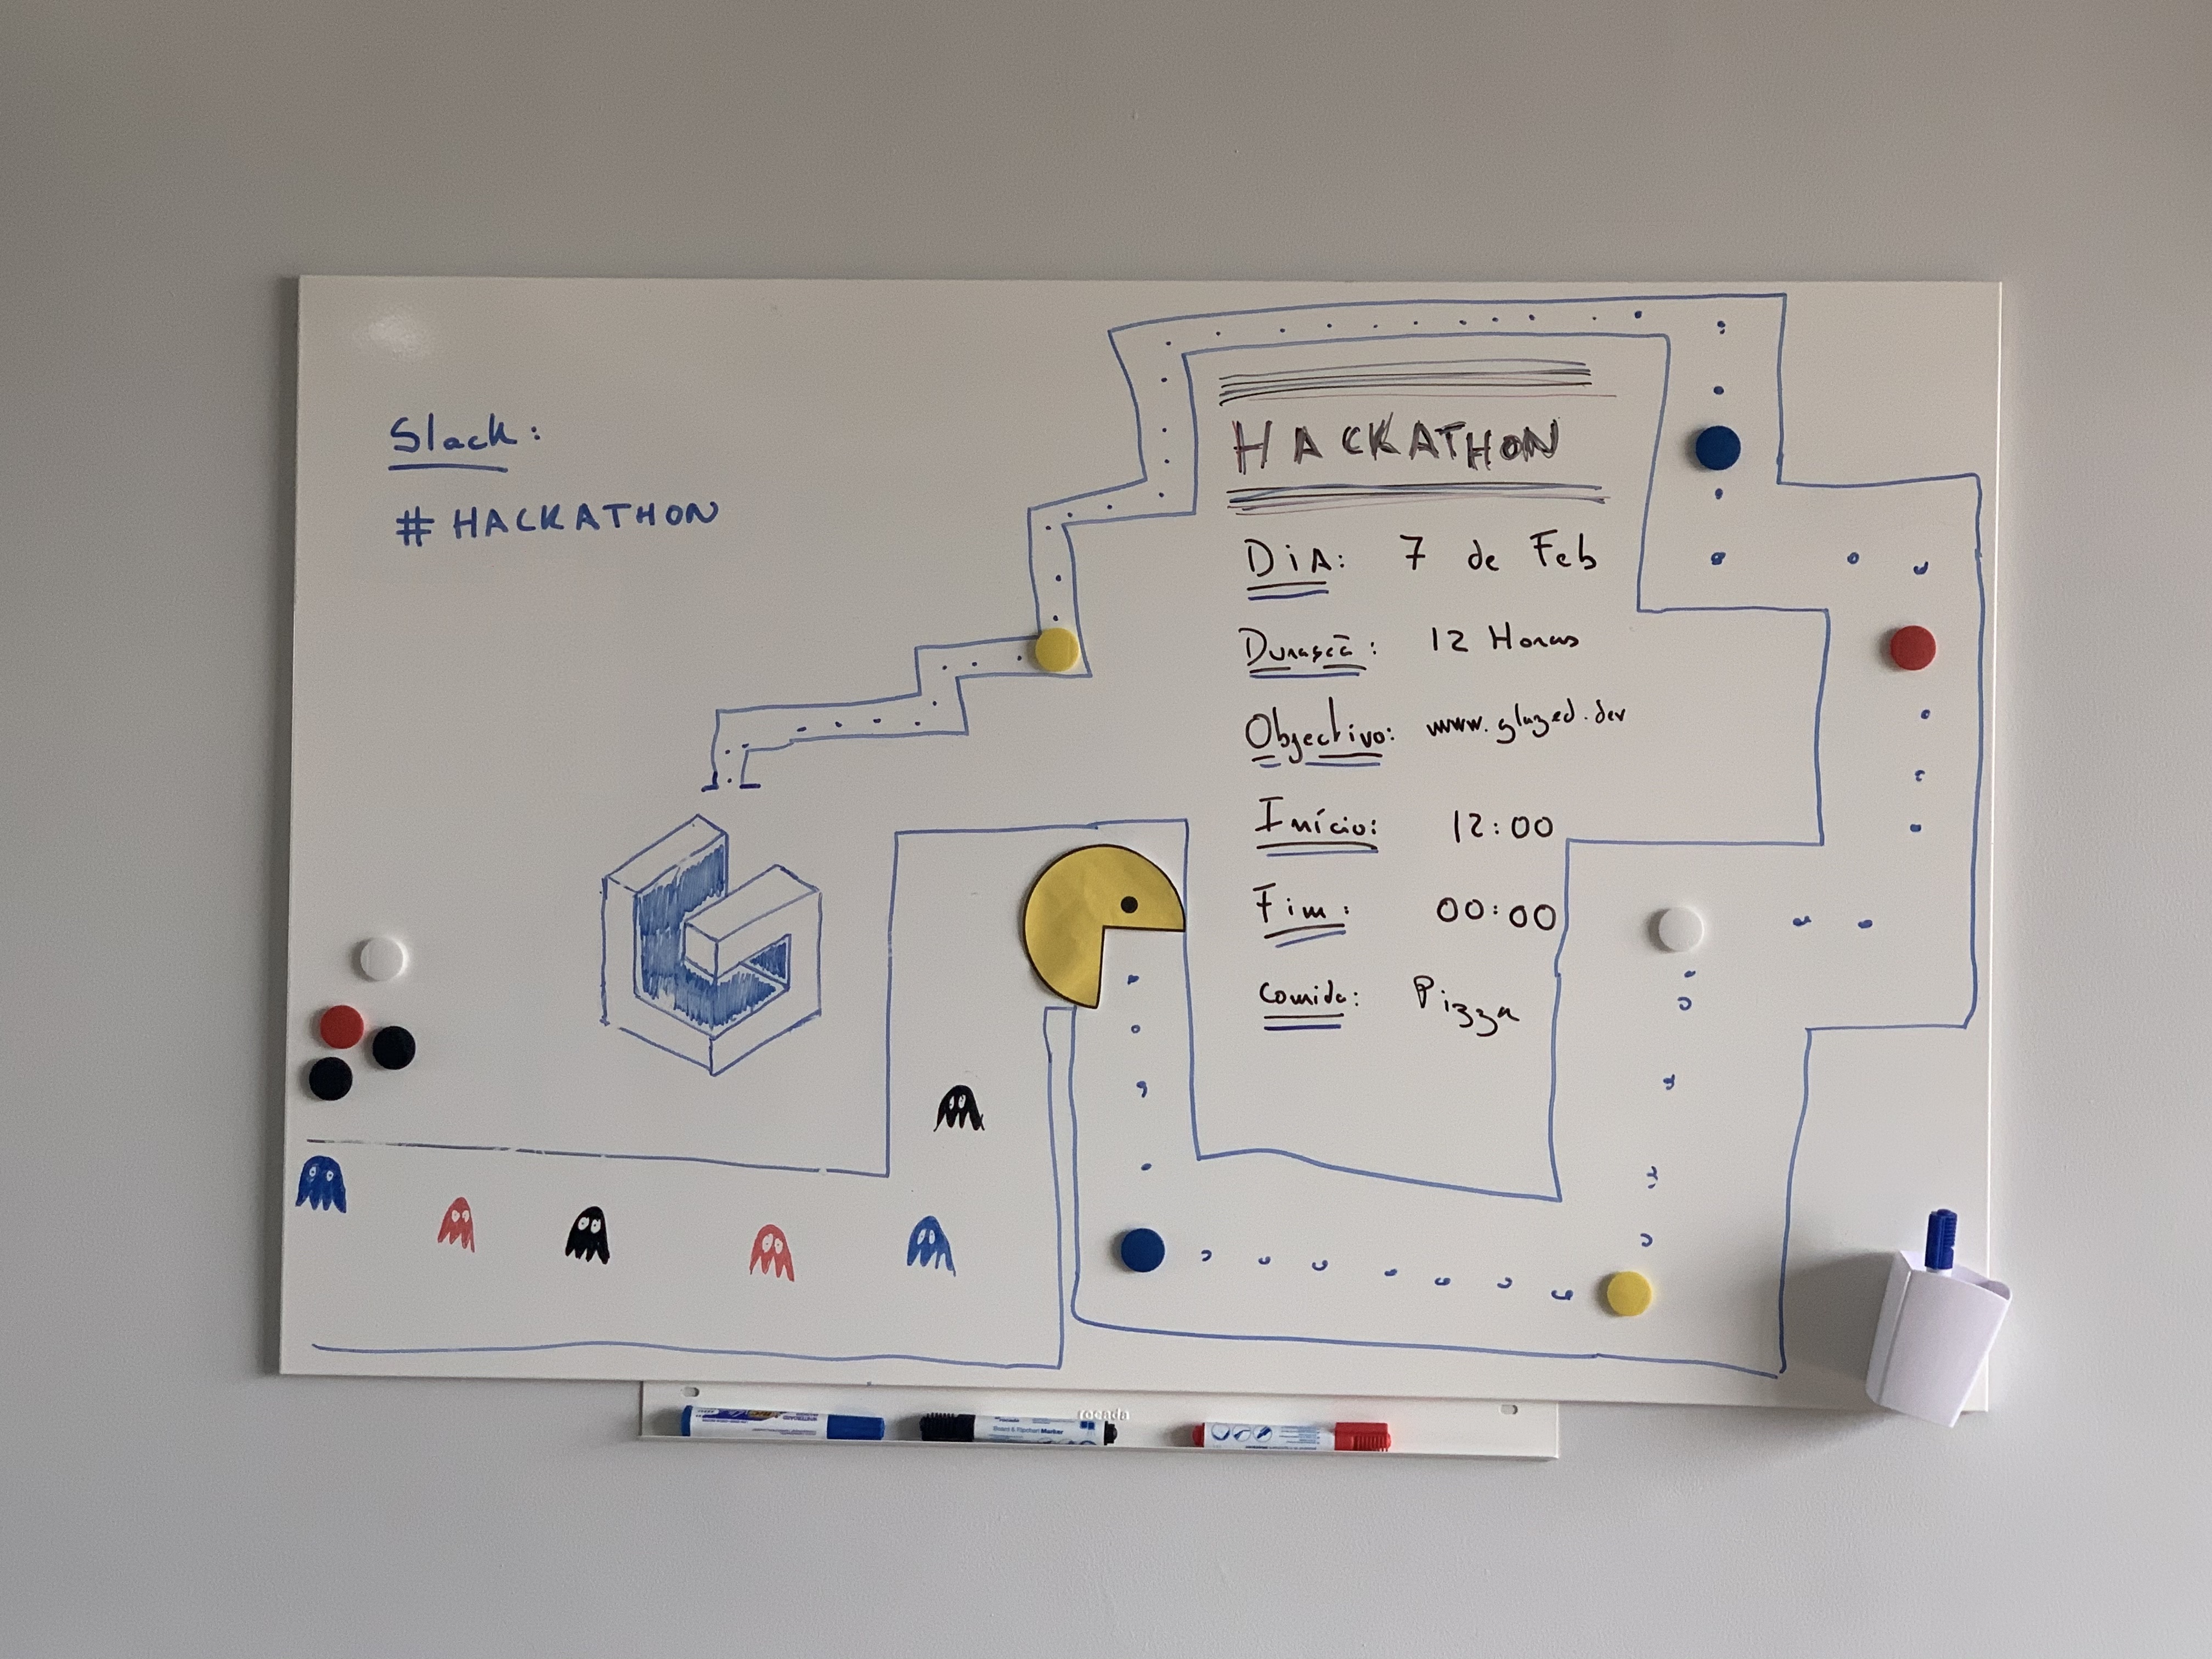 Slack:
# HACKATHON
HACKATHON
DiA: 7 de Feb
Duração: 12 Horas
Objectivo: www.glazed.dev
Início: 12:00
Fim: 00:00
Comida: Pizza
rocada
rocada
Board & Flipchart Marker